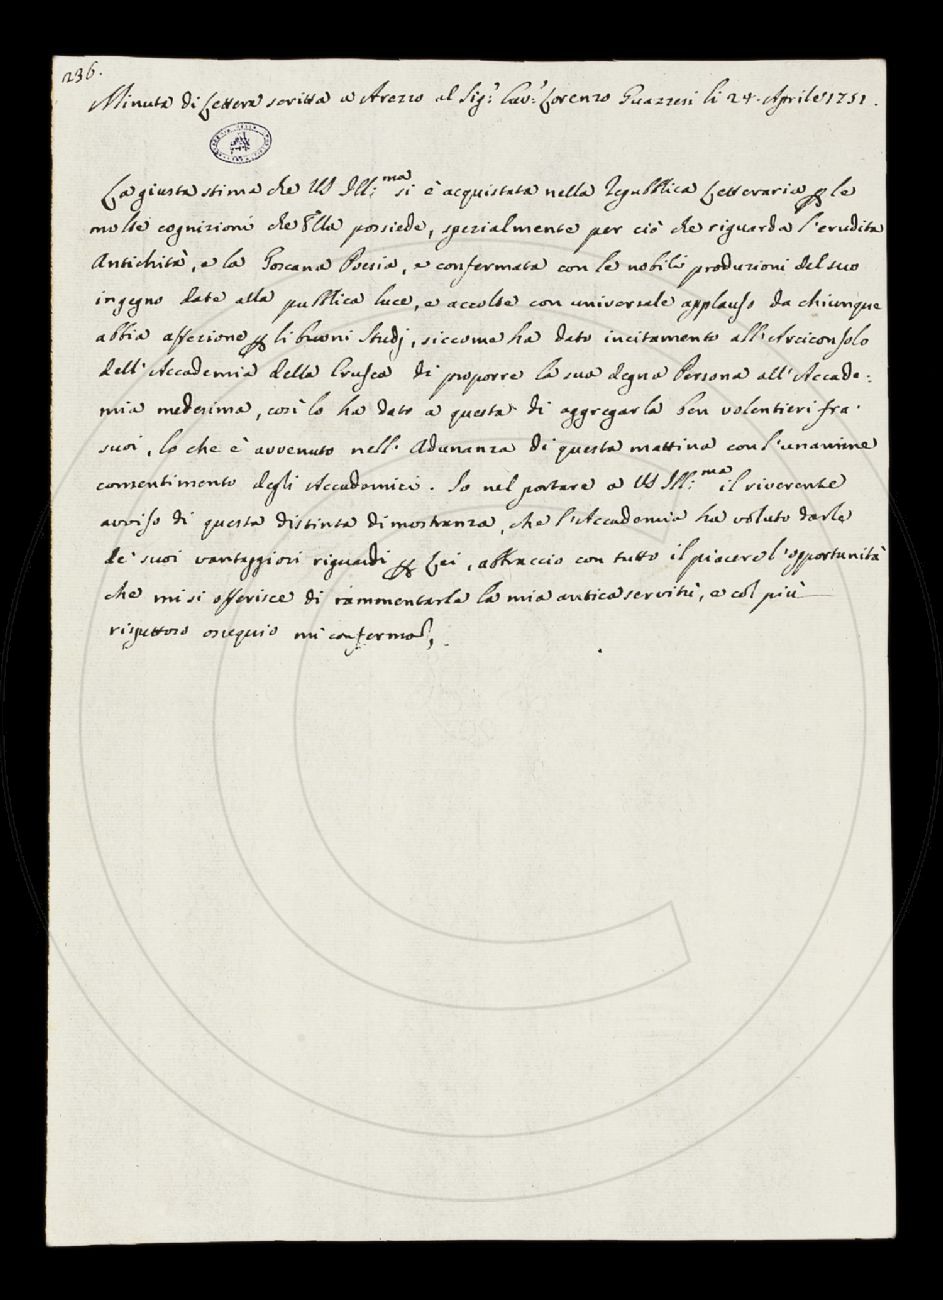 236.
Minuta di Lettera scritta a Arezzo al Sig.r Cav.r Lorenzo Guazzesi li 24. Aprile 1751.
La giusta stima che VS Ill:ma si è acquistata nella Repubblica Letteraria per le
molte cognizioni che Ella possiede, spezialmente per ciò che riguarda l'erudita
Antichità, e la Toscana Poesia, e confermata con le nobili produzioni del suo
ingegno date alla pubblica luce, e accolte con universale applauso da chiunque
abbia affezione per li buoni studj, siccome ha dato incitamento all'Arciconsolo
dell'Accademia della Crusca di proporre la sua degna Persona all'Accade:
mia medesima, così lo ha dato a questa di aggregarla ben volentieri fra'
suoi, lo che è avvenuto nell'Adunanza di questa mattina con l'unanime
consentimento degli Accademici. Io nel portare a VS Ill:ma il riverente
avviso di questa distinta dimostranza, che l'Accademia ha voluto darle
de' suoi vantaggiosi riguardi per Lei, abbraccio con tutto il piacere l'opportunità
che mi si offerisce di rammentarle la mia antica servitù, e col più
rispettoso ossequio mi confermo